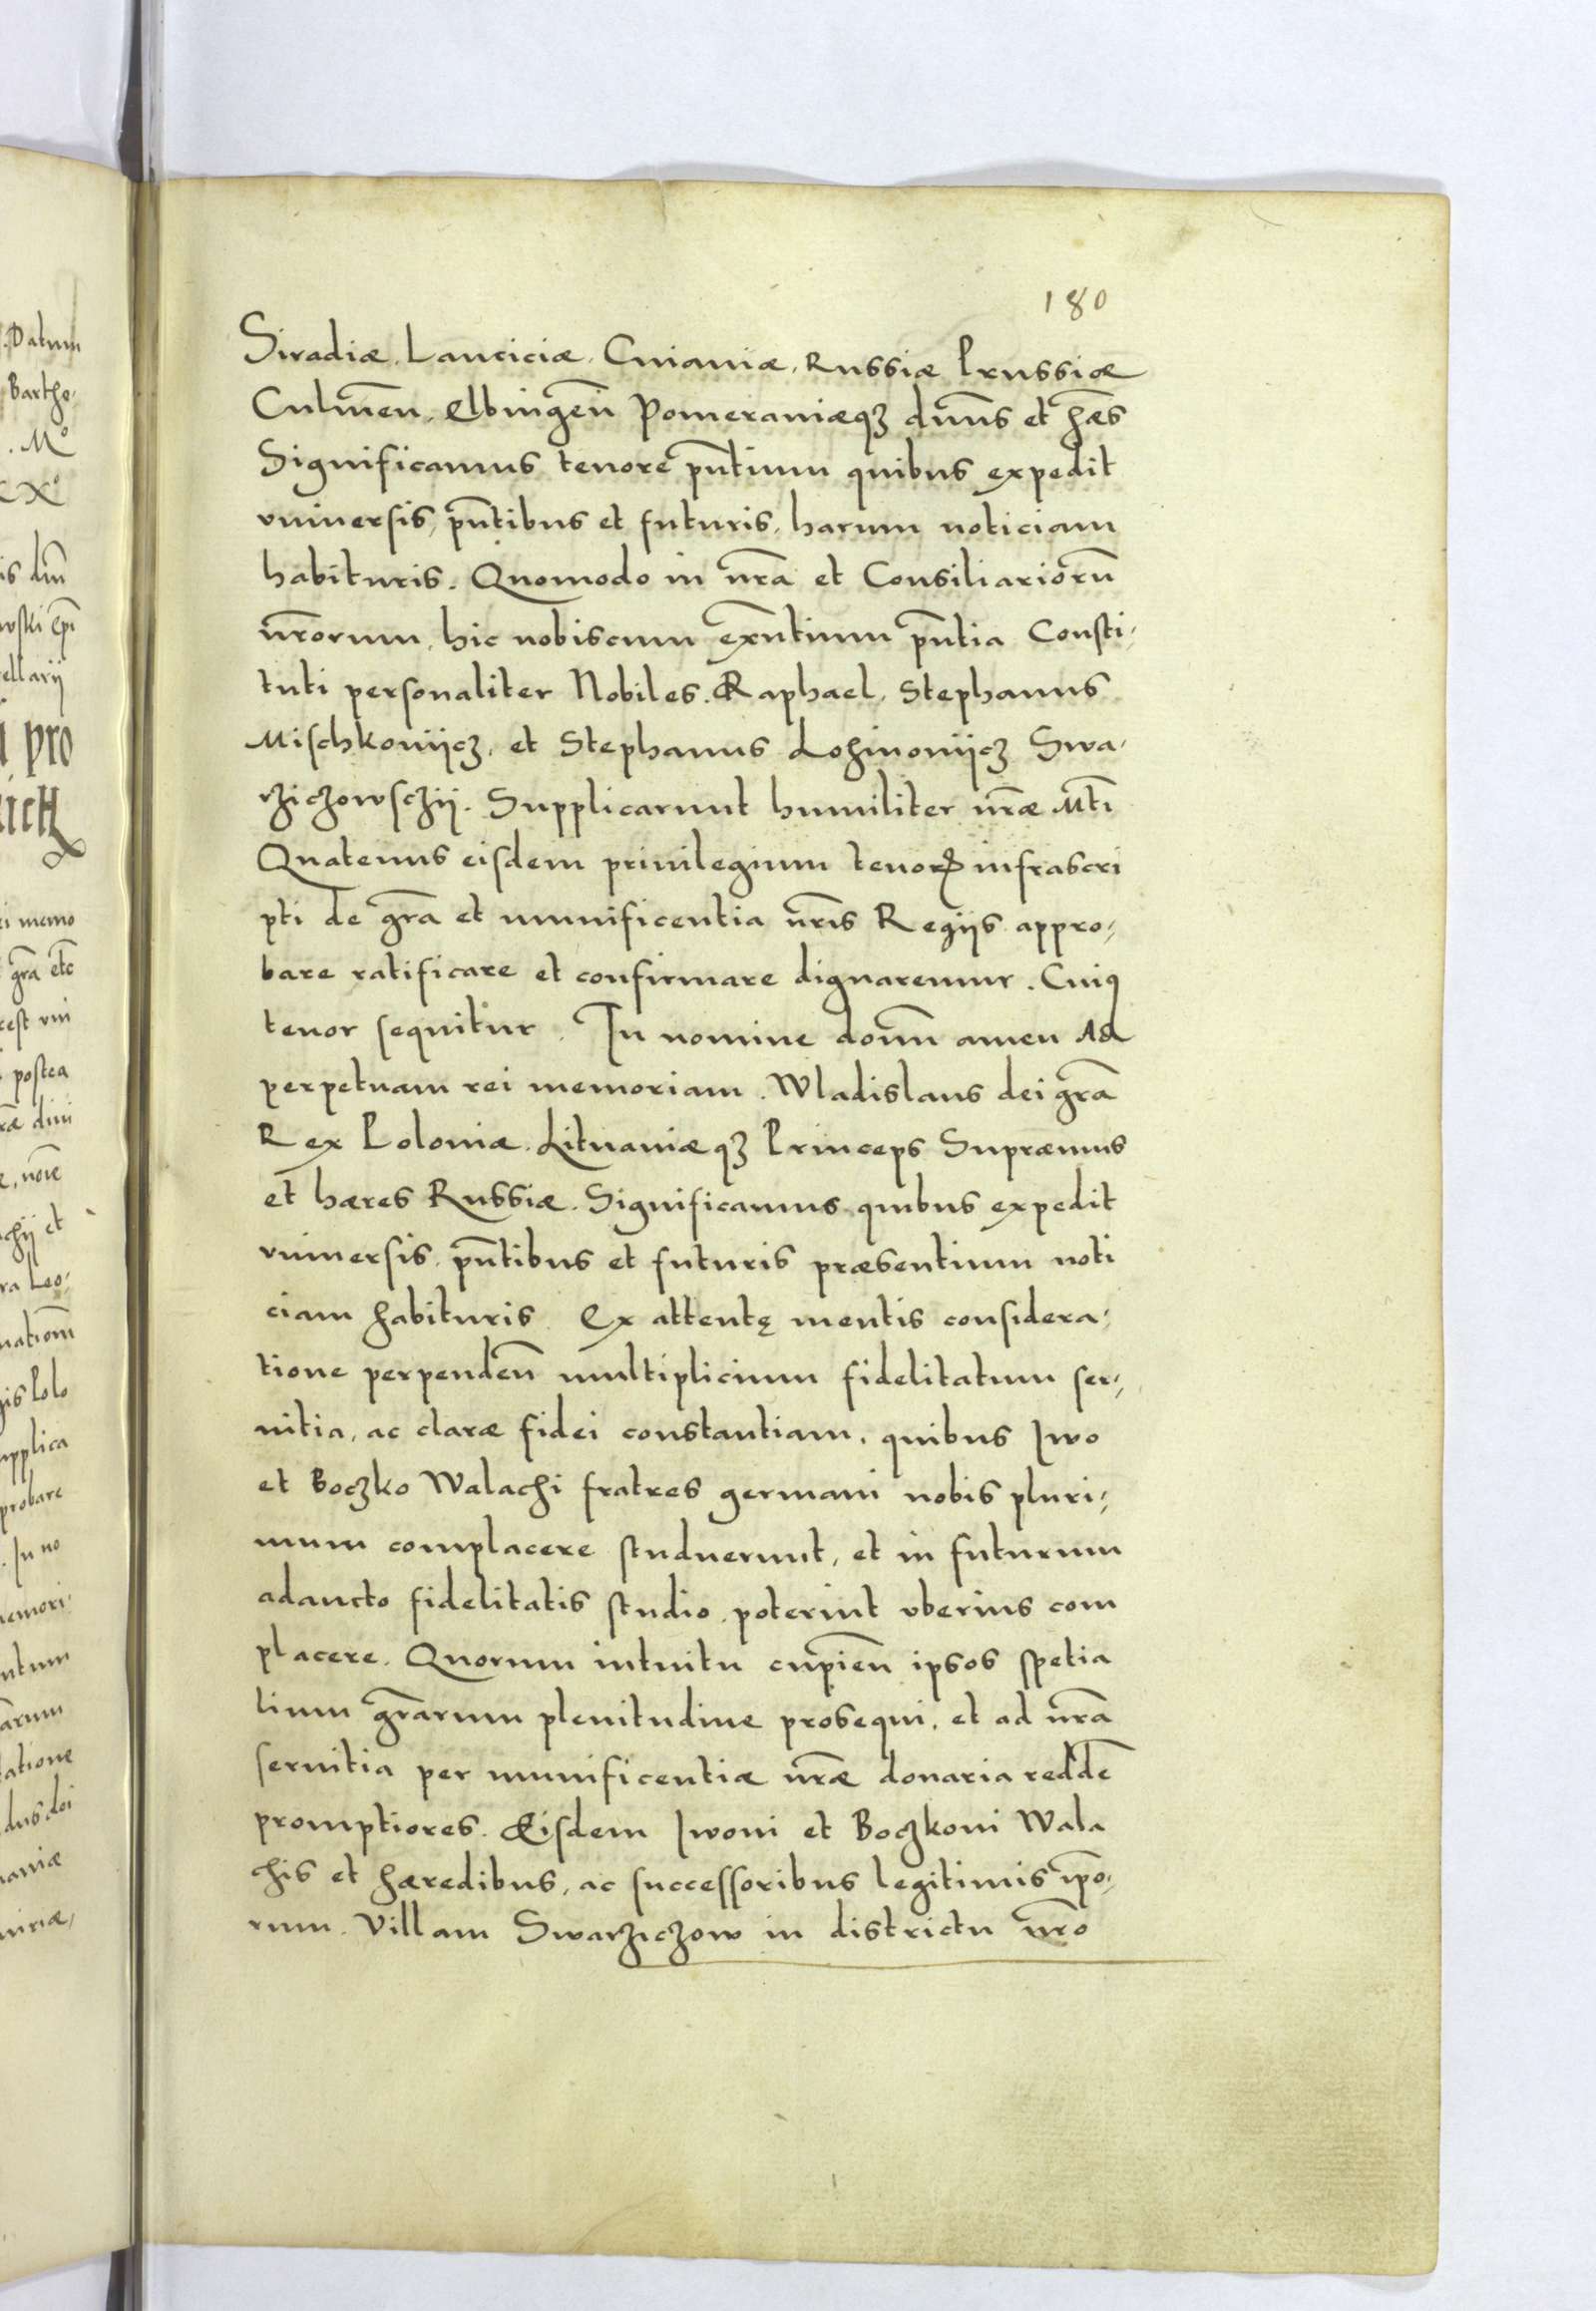 180
Siradiæ. Lanciciæ. Cuiaviæ. Russiæ Prussiæ
Culmeñ. Elbingeñ Pomeraniæqꝫ dn̄us et hǣs
Significamus tenore pñtium quibus expedit
vniuersis, pñtibus et futuris, harum noticiam
habituris. Quomodo in nr̄a et Consiliariorū
nr̄orum, hic nobiscum ex̄ntium pñtia Consti-
tuti personaliter Nobiles. Raphael, Stephanus
Mischkoviicꝫ, et Stephanus Lohinoviicꝫ Swa-
rziczowsczij. Supplicarunt humiliter nr̄æ Mt̄i
Quatenus eisdem priuilegium tenoꝝ infrascri
pti de gr̄a et munificentia nr̄is Regijs appro-
bare ratificare et confirmare dignaremur. Cuiꝰ
tenor sequitur. In nomine domī amen Ad
perpetuam rei memoriam. Wladislaus dei gr̄a
Rex Poloniæ. Lituaniæqꝫ Princeps Supræmus
et hæres Russiæ. Significamus quibus expedit
vniuersis, pñtibus et futuris præsentium noti
ciam habituris Ex attentę mentis considera-
tione perpendeñ multiplicium fidelitatum ser-
uitia, ac claræ fidei constantiam, quibus Iwo
et Boczko Walachi fratres germani nobis pluri-
mum complacere studuerunt, et in futurum
adaucto fidelitatis studio poterint vberius com
placere. Quorum intuitu cupieñ ipsos spetia
lium gr̄arum plenitudine prosequi, et ad nr̄a
seruitia per munificentiæ nr̄æ donaria reddē
promptiores. Eisdem Iwoni et Boczkoni Wala
chis et hæredibus, ac successoribus legitimis ip̄o-
rum. Villam Swarziczow in districtu nr̄o